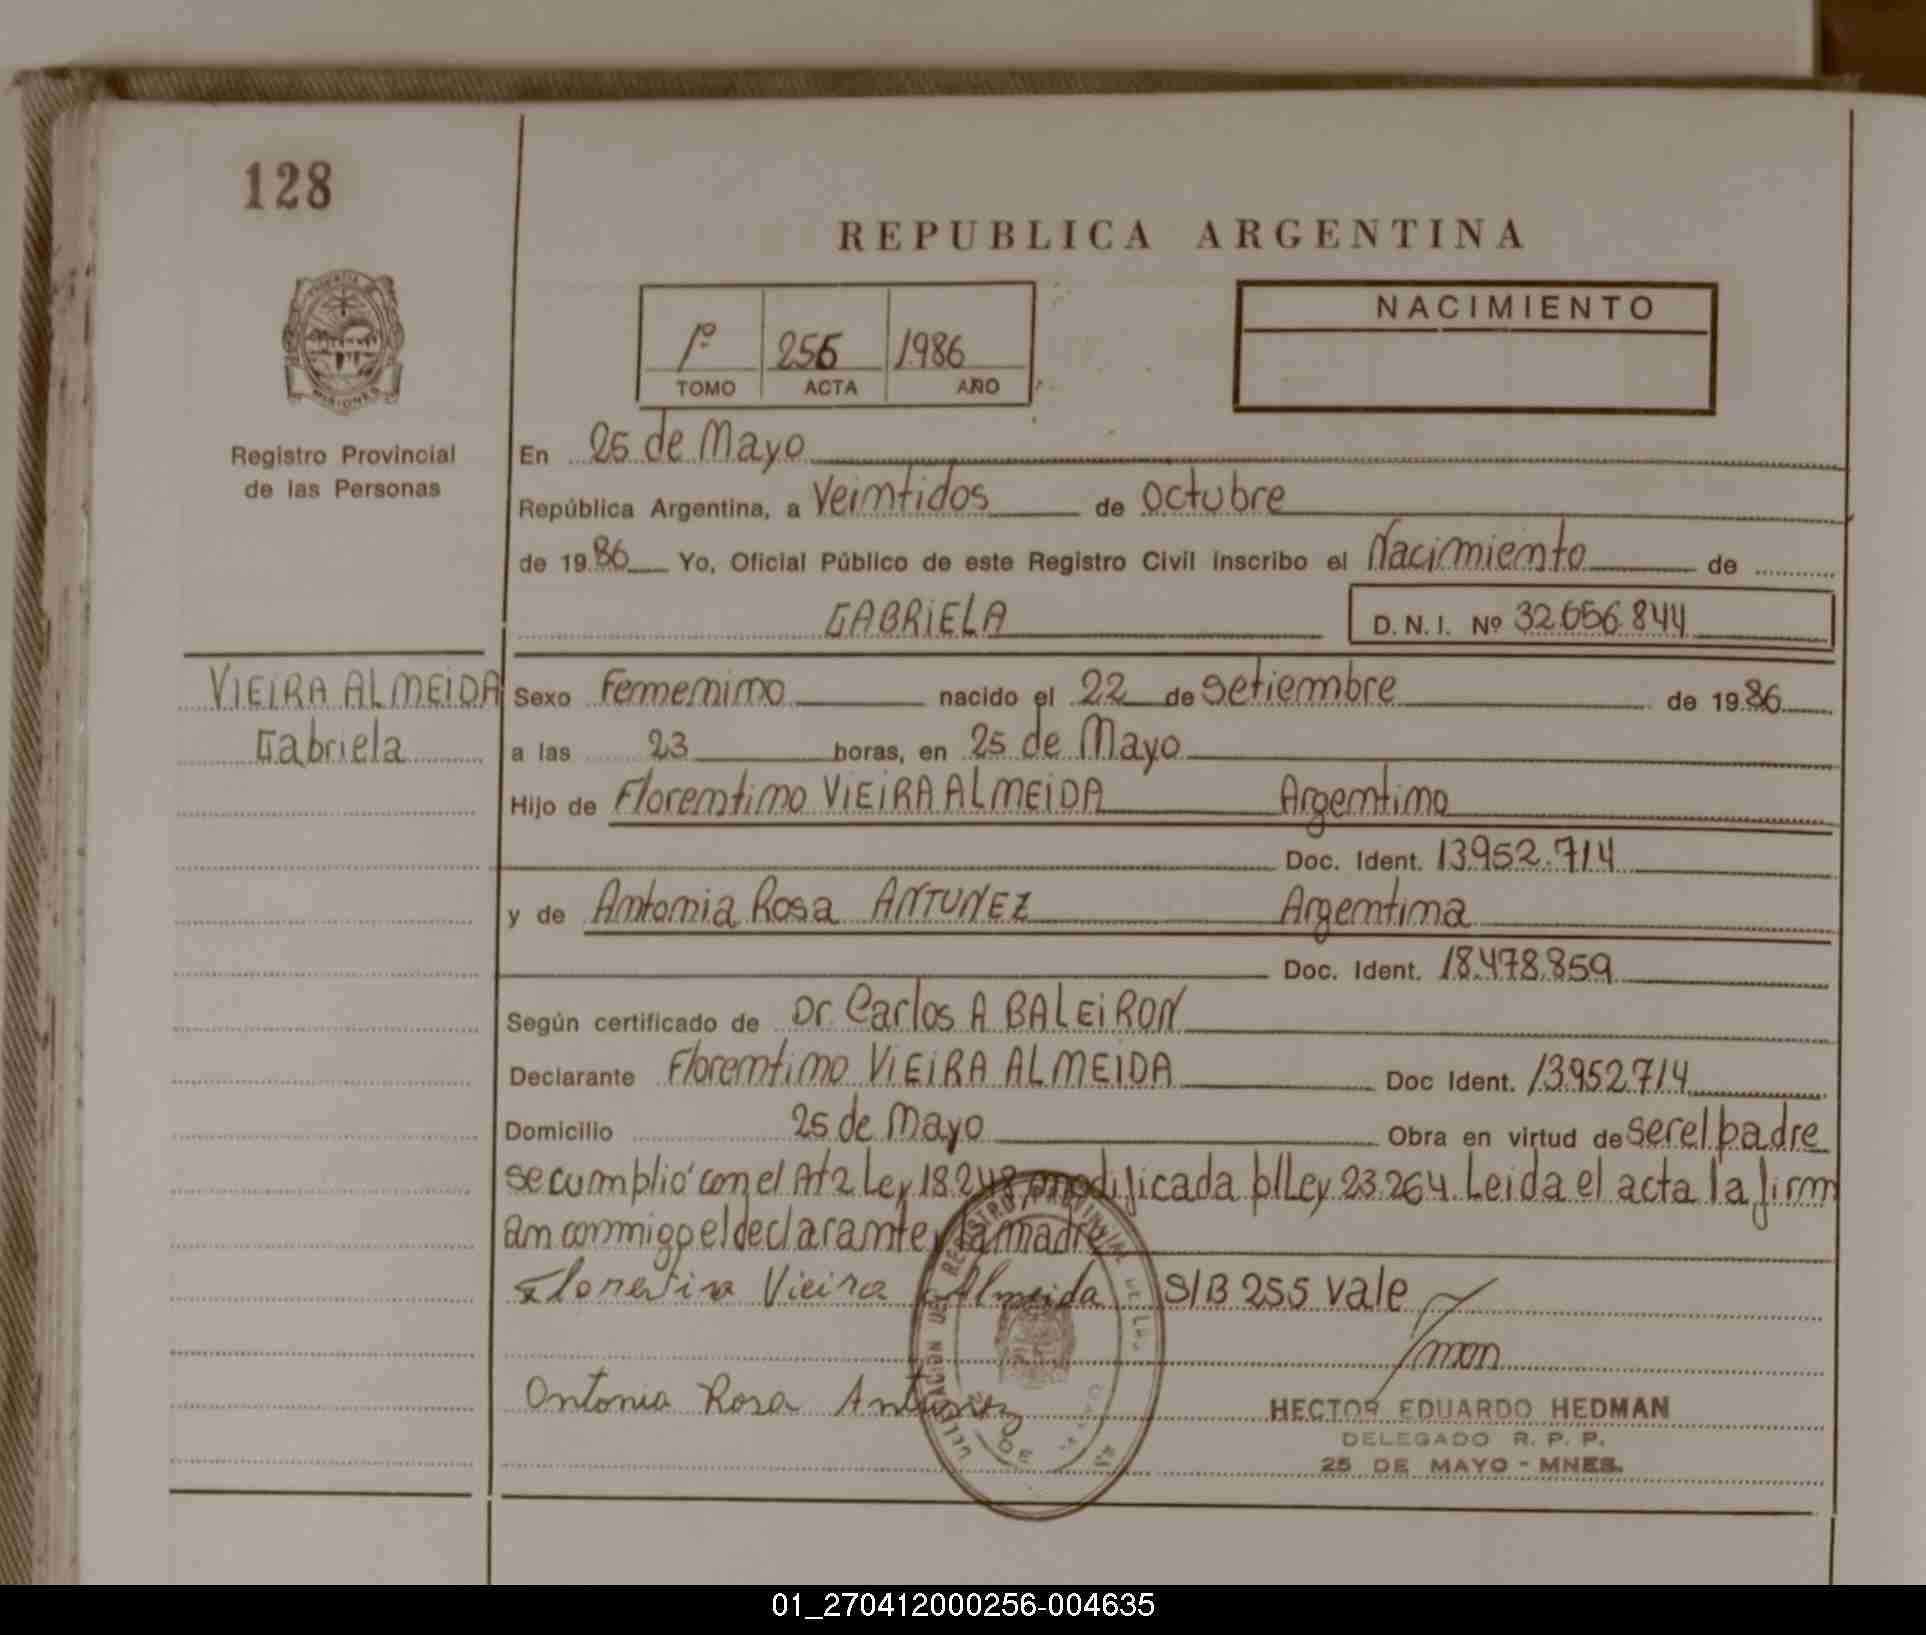 128
REPUBLICA ARGENTINA
NACIMIENTO
1º 255 1986
TOMO ACTA AÑO
Registro Provincial
de las Personas
En 25 de Mayo
República Argentina, a Veintidos de octubre
de 19 86 Yo, Oficial Público de este Registro Civil inscribo el Nacimiento de
GABRIELA D. N. I. Nº 32.656.844
VIEIRA ALMEIDA
Gabriela
Sexo Femenino nacido el 22 de setiembre de 19 86
a las 23 horas, en 25 de Mayo
Hijo de Florentino VIEIRA ALMEIDA Argentino
Doc. Ident. 13952.714
y de Antonia Rosa ANTUNEZ Argentina
Doc. Ident. 18.478.859
Según certificado de Dr Carlos A BALEIRON
Declarante Florentino VIEIRA ALMEIDA Doc Ident. 13952714
Domicilio 25 de Mayo Obra en virtud de ser el padre
se cumplió con el At 2 Ley 18.248, modificada p/Ley 23.264. Leida el acta la firm
an conmigo el declarante y la madre
Florentino Vieira Almeida S/B 255 vale
Antonia Rosa Antunez
HECTOR EDUARDO HEDMAN
DELEGADO R. P. P.
25 DE MAYO - MNES.
01_270412000256-004635